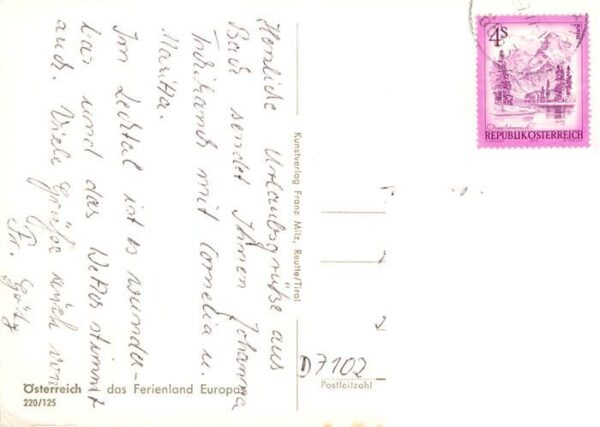 Herzliche Urlaubsgrüße aus
Bach sendet Ihnen Johanna
mit Cornelia u.
Maritta.
Im Lechtal ist es wunder-
bar und das Wetter stimmt
auch. Viele Grüße auch von
Fr. Götz
Kunstverlag Franz Milz, Reutte/Tirol
Österreich das Ferienland Europas
220/125
4S
REPUBLIK ÖSTERREICH
D 7102
Postleitzahl